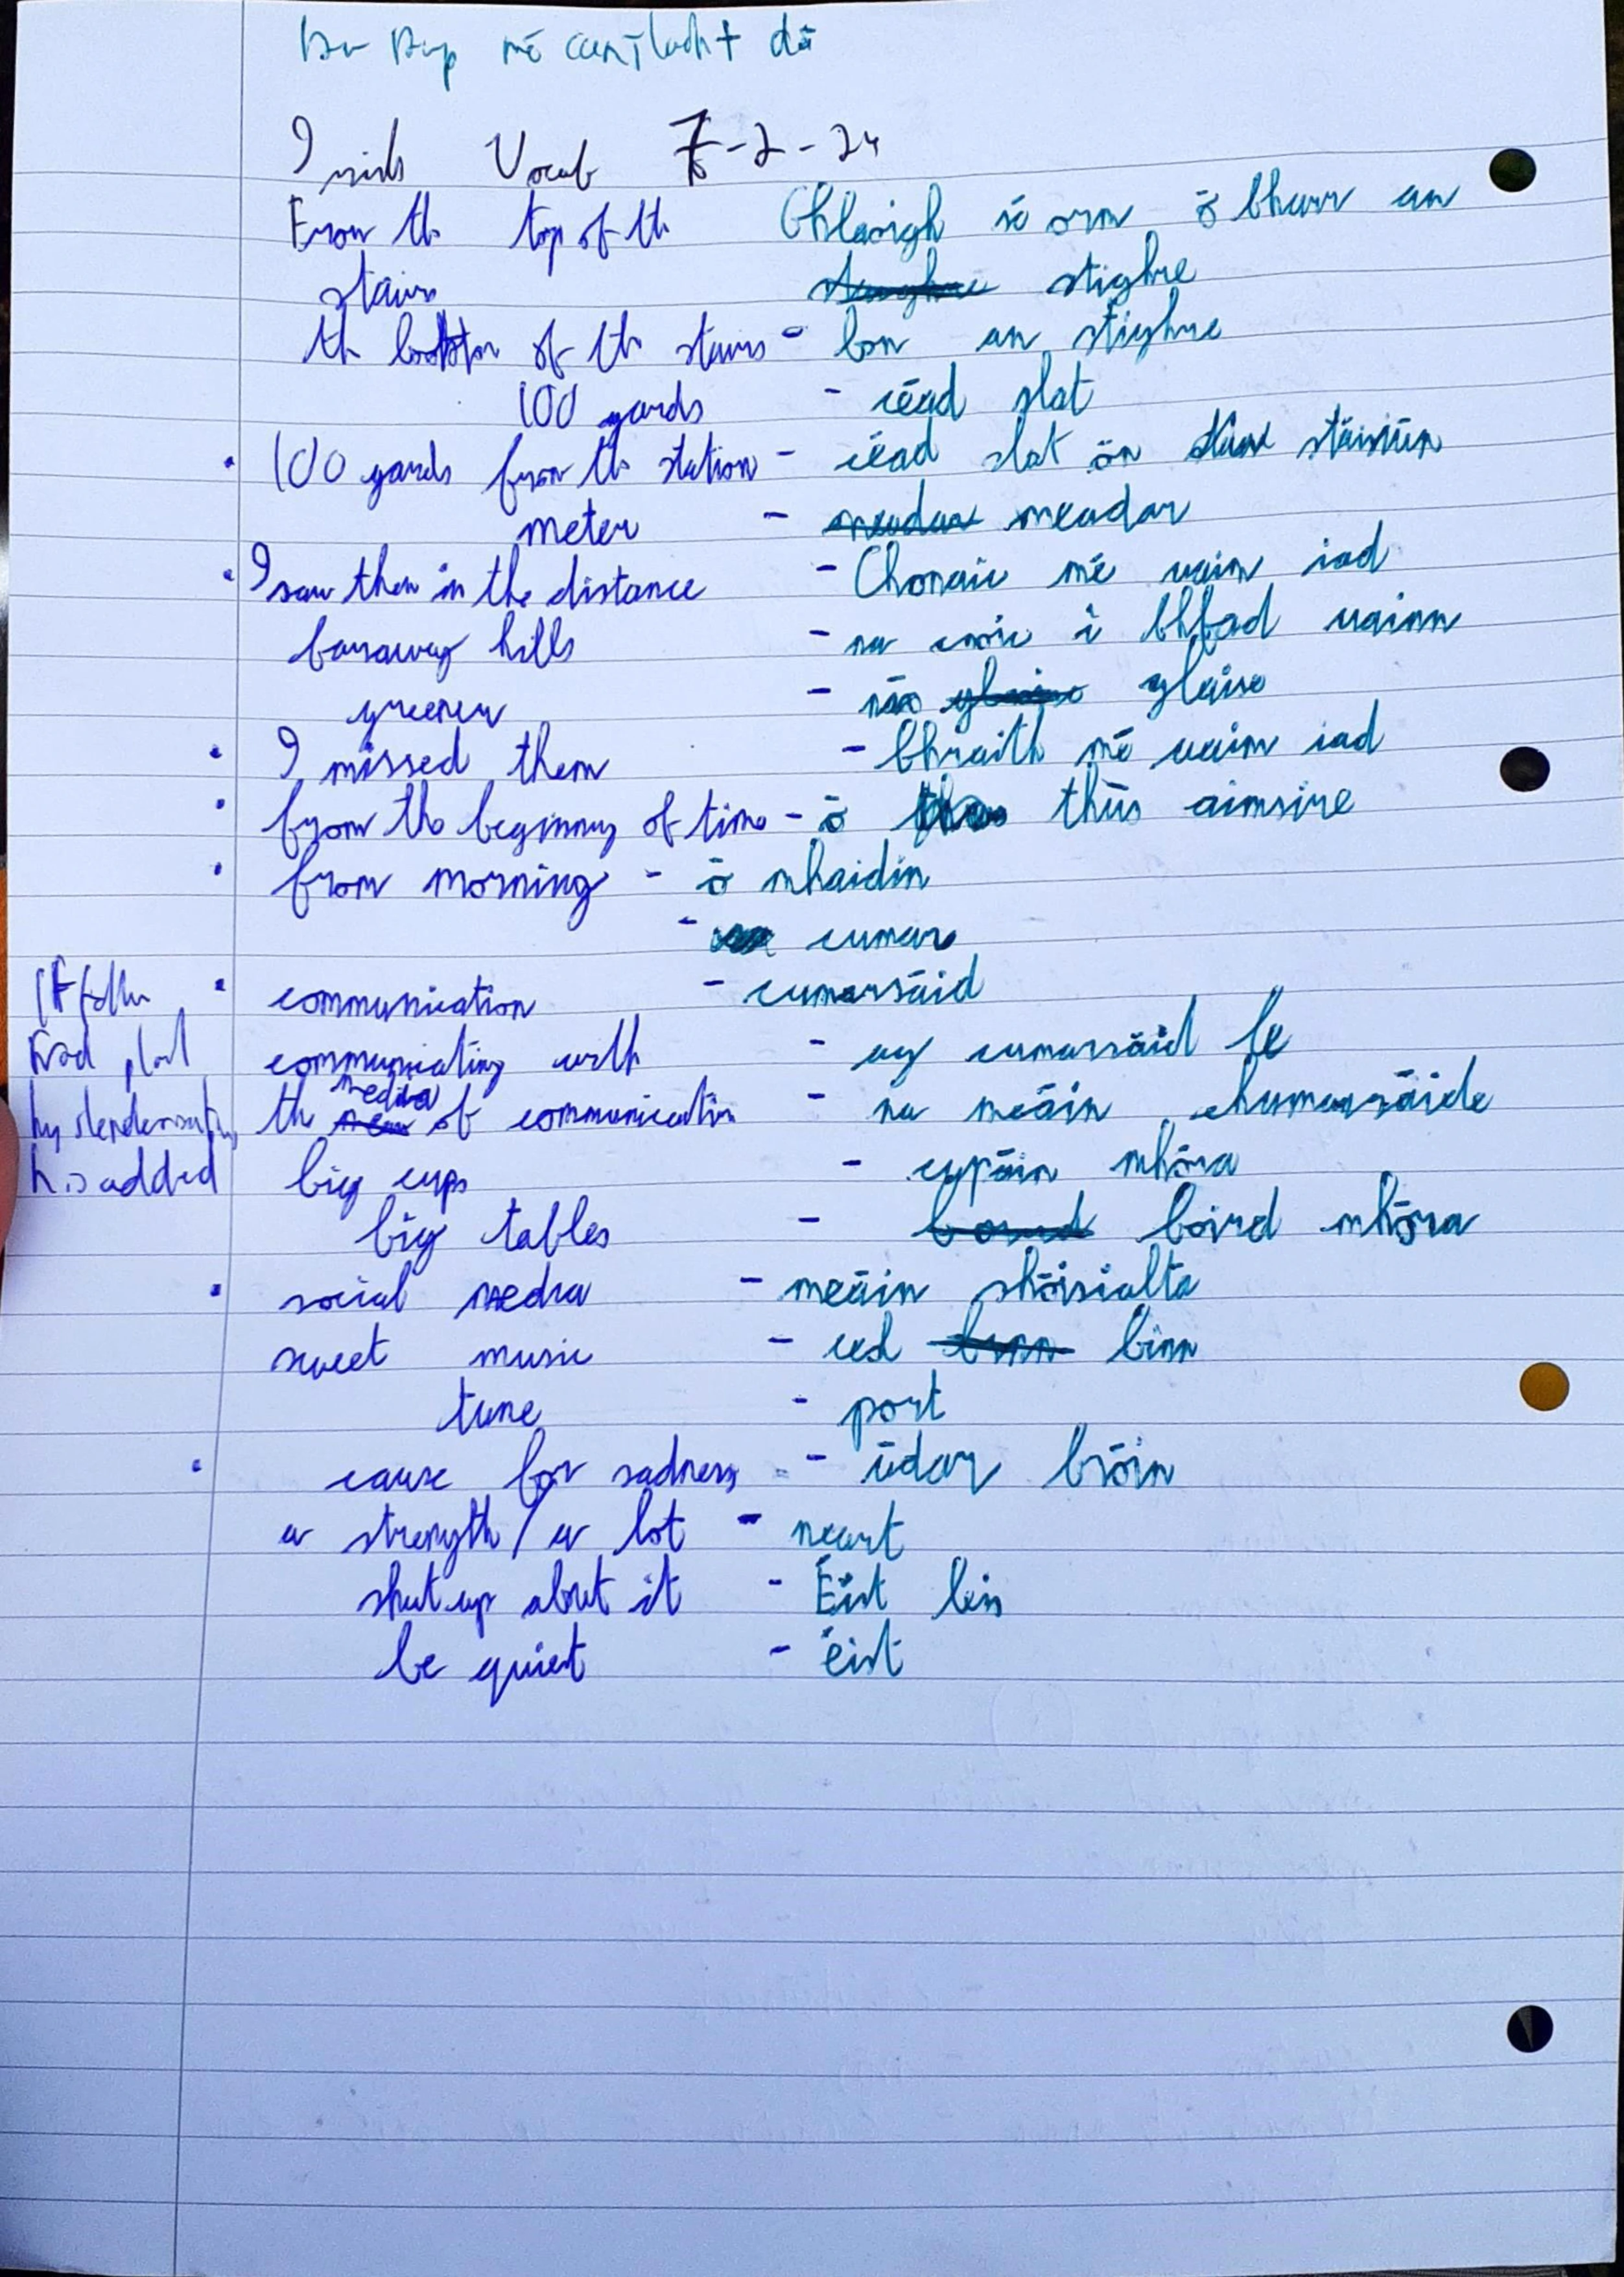 mé dá
Irish Vocab 7-2-24
From the top of the Ghlaoigh sé orm ó bharr an
stairs stighre
th bottom of th stairs - bon an stighre
100 yards - céad slat
• 100 yards from th station - céad slat ón stáisiún
meter - meadar
• I saw them in the distance - Chonaic mé uaim iad
faraway hills - na cnoic i bhfad uainn
greener - níos glaise
• I missed them - bhraith mé uaim iad
• from the beginning of time - ó thús aimsire
• from morning - ó mhaidin
- cumar
• communication - cumarsáid
communicating with - ag cumarsáid le
the media of communication - na meáin chumarsáide
It follow
by slenderisation
h is added
big cups - cupáin mhóra
big tables - boird mhóra
• social media - meáin shóisialta
sweet music - ceol binn
tune - port
• cause for sadness - údar bróin
a strength / a lot - neart
shut up about it - Éist leis
be quiet - éist